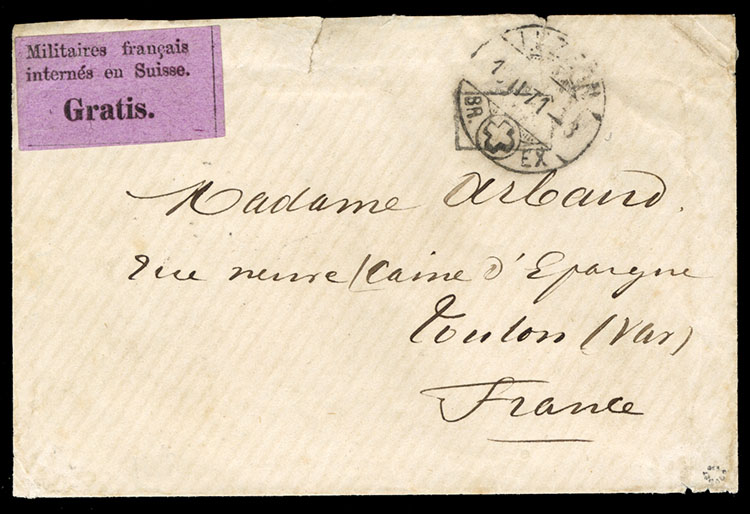 Militaires français
internés en Suisse.
Gratis.
LUZERN
1 II 71 - 8
BR. EX
Madame Arbaud.
rue neuve (Caine d'Epargne
Toulon (Var)
France